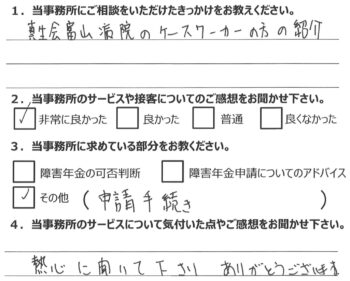 1．当事務所にご相談をいただけたきっかけをお教えください。
真生会富山病院のケースワーカーの方の紹介
2．当事務所のサービスや接客についてのご感想をお聞かせ下さい。
☑非常に良かった □良かった □普通 □良くなかった
3．当事務所に求めている部分をお教ください。
□障害年金の可否判断 □障害年金申請についてのアドバイス
☑その他（申請手続き）
4．当事務所のサービスについて気付いた点やご感想をお聞かせ下さい。
熱心に聞いて下さり ありがとうございます